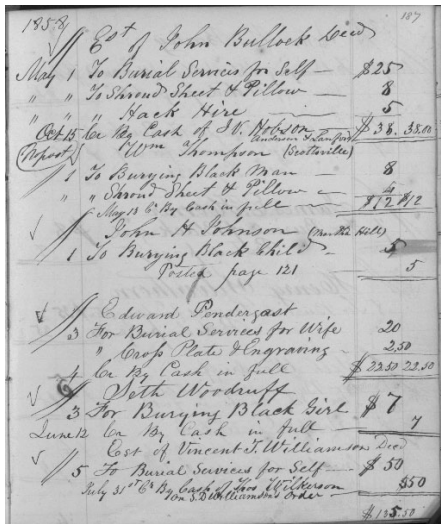 187
1858 Est of John Bullock Decd
May 1 To Burial Services for Self — $25
" " To Shroud Sheet & Pillow — 8
" " " Hack Hire — 5
Oct 15 Cr By Cash of S V. Hobson $38. 38.00
(No post) Wm Thompson (Scottsville)
1 To Burying Black Man — 8
" " Shroud Sheet & Pillow — 4
May 13 Cr By Cash in full — $12 $12
John H Johnson (Hill)
1 To Burying Black Child — 5
Posted page 121 5
Edward Pendergast
3 For Burial Services for Wife 20
" Crop Plate & Engraving — 2,50
4 Cr By Cash in full $22.50 22.50
Seth Woodruff
3 For Burying Black Girl $7
June 12 Cr By Cash in full — 7
Est of Vincent T. Williamson Decd
5 To Burial Services for Self — $50
July 31st Cr By Cash of Wilkerson $50
on S. D Williamsons order —
$135.50